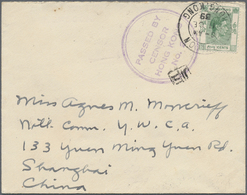 PASSED BY
CENSOR
HONG KONG
HONG KONG
Miss Agnes M. Moncrieff
Natl. Comm. Y.W.C.A.
133 Yuen Ming Yuen Rd.
Shanghai
China